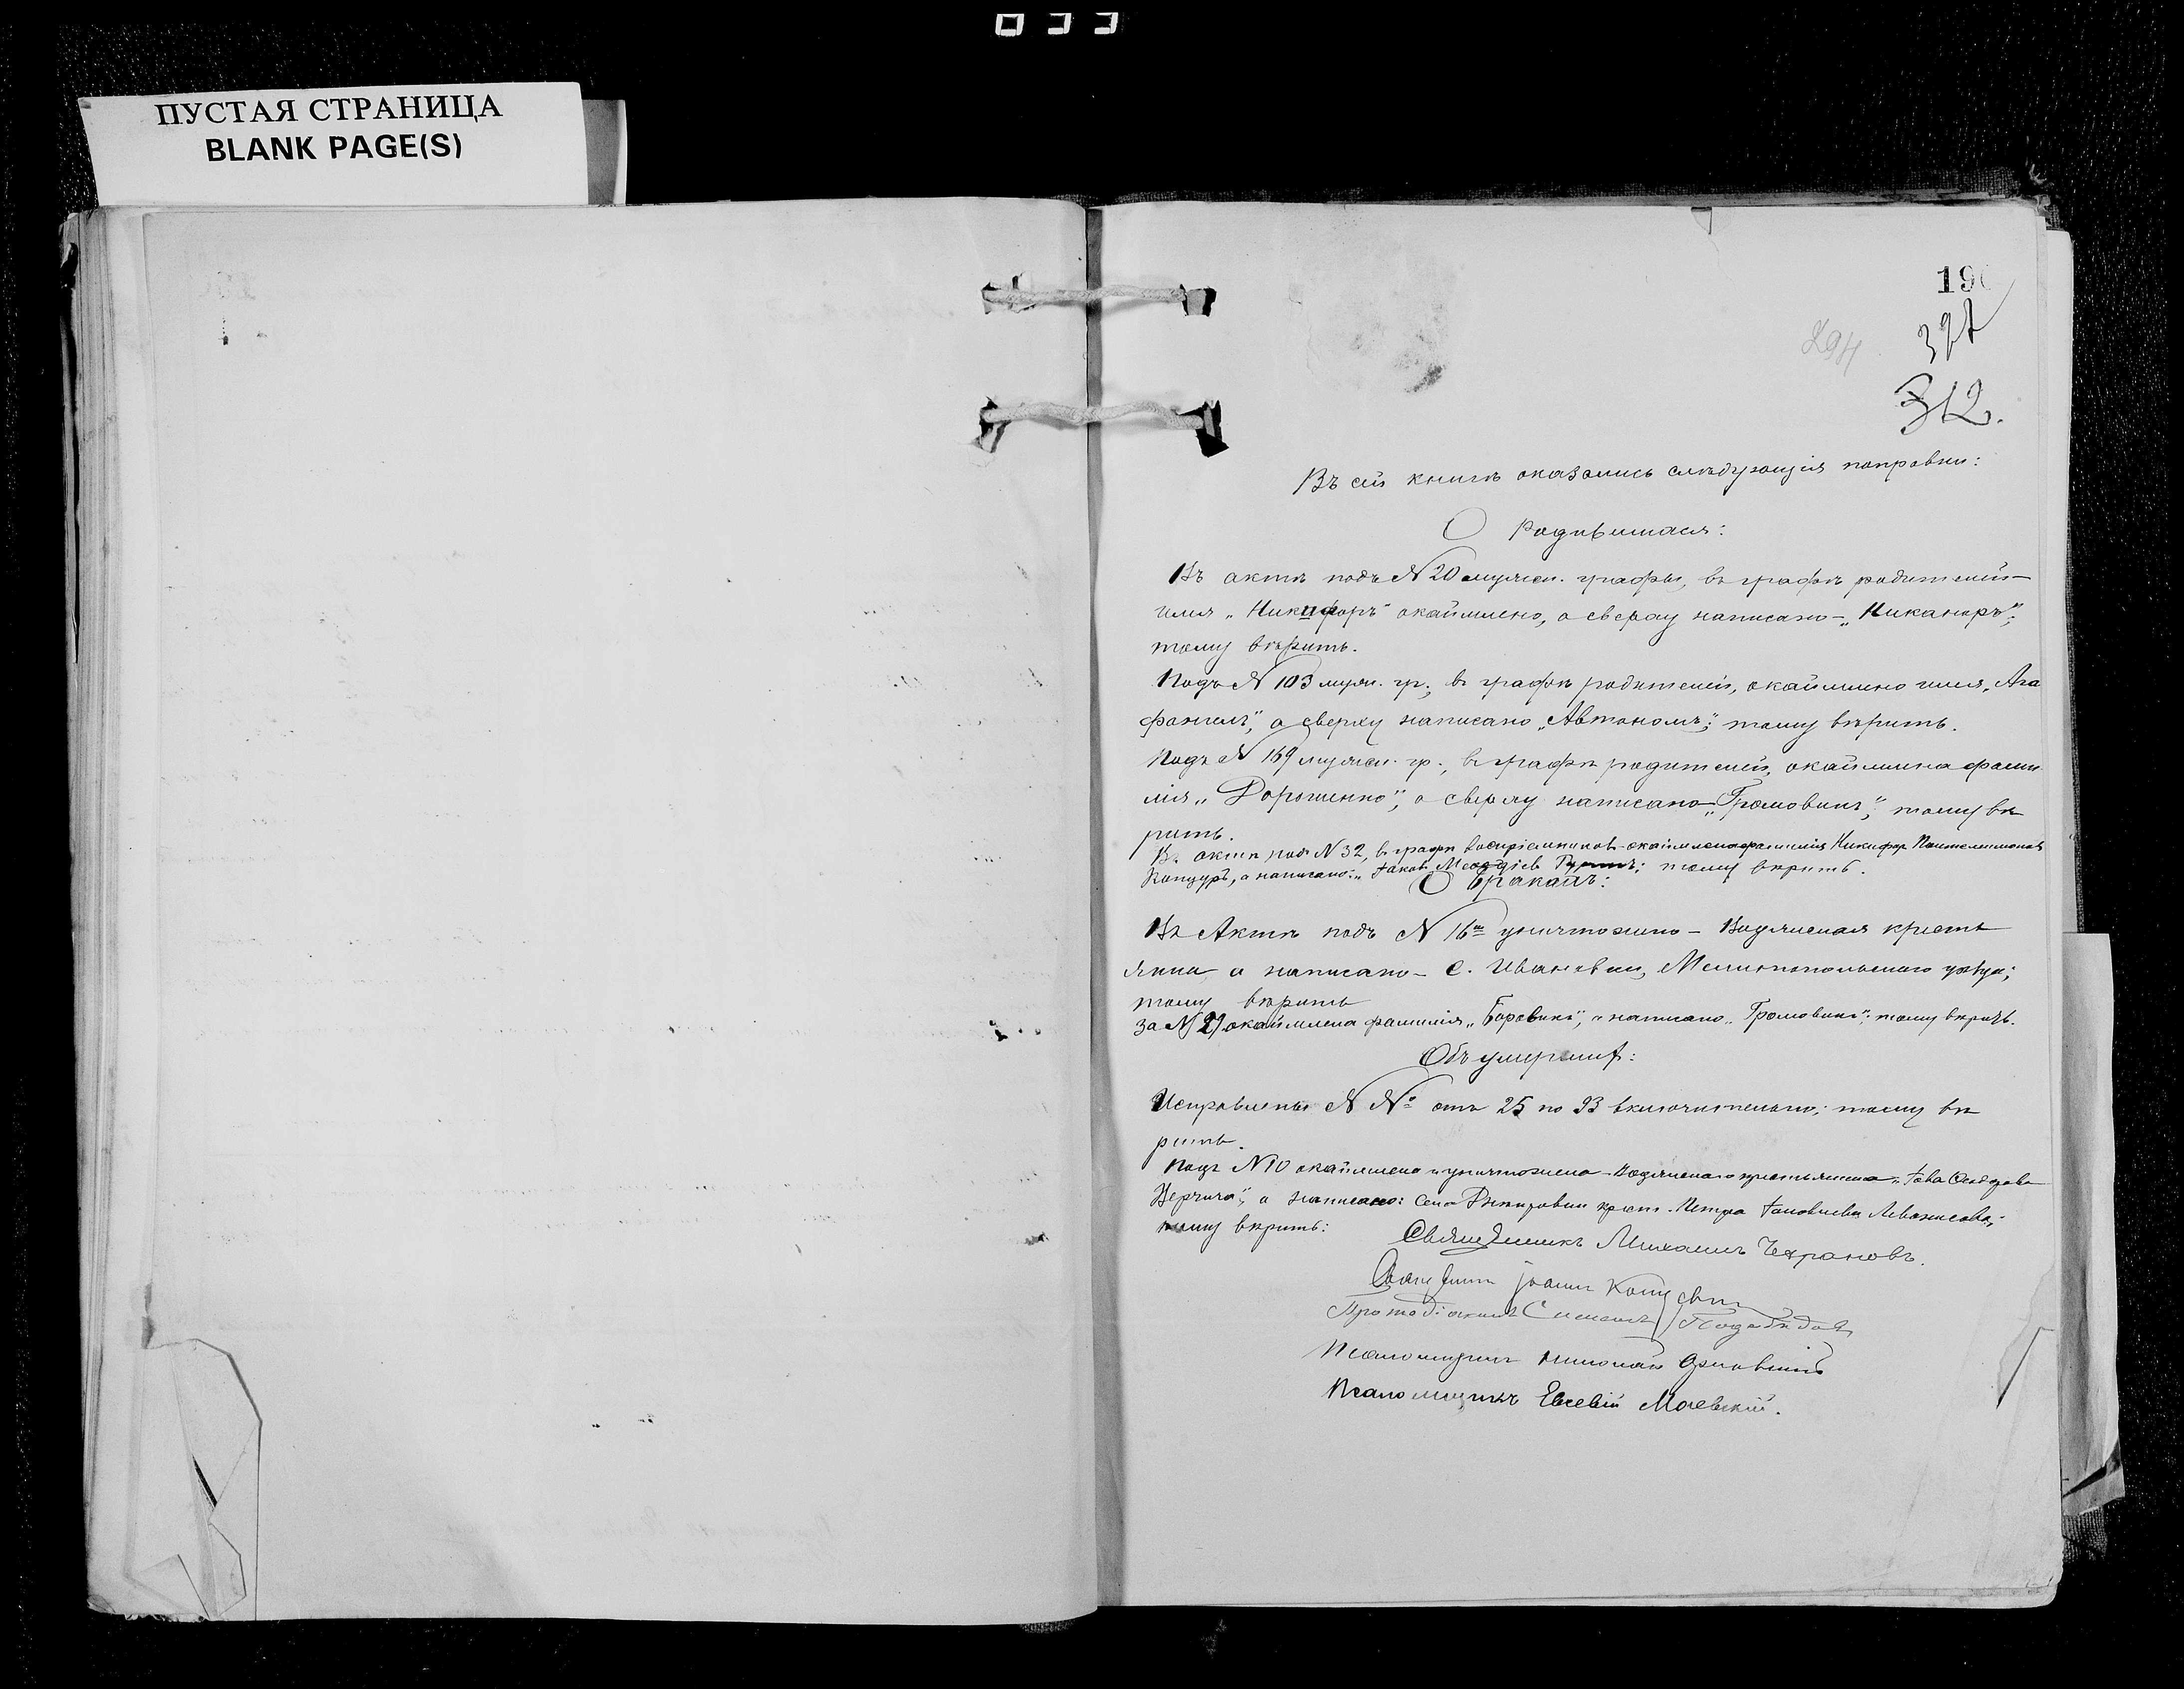 033
ПУСТАЯ СТРАНИЦА
BLANK PAGE(S)
190
327
294
312.
Въ сей книгѣ оказались слѣдующія поправки:
О родившихся:
Въ актѣ подъ № 20 мужск. графы, въ графѣ родителей –
имя „Никифоръ" окаймлено, а сверху написано – „Никаноръ";
тому вѣрить.
Подъ № 103 муж. гр., въ графѣ родителей, окаймлено имя „Ага
фангелъ", а сверху написано „Автономъ"; тому вѣрить.
Подъ № 169 мужск. гр., въ графѣ родителей, окаймлена фами
лія „Дорошенко", а сверху написано „Громовикъ", тому вѣ
рить.
Въ актѣ подъ № 32, въ графѣ воспріемниковъ окаймлена фамилія Никифоръ Пантелимоновъ
Концуръ, а написано: „Іаковъ тому вѣрить.
О бракахъ:
Въ Актѣ подъ № 16м уничтожено – Водянская кресть
янка а написано – с. Ивановки, Мелитопольскаго уѣзда;
тому вѣрить
За № 27 окаймлена фамилія „Боровикъ", а написано „Громовикъ"; тому вѣрить.
Объ умершихъ:
Исправлены № № отъ 25 по 93 включительно; тому вѣ
рить.
Подъ № 10 окаймлена и уничтожено – Водянскаго крестьянина „Іова
а написано: села крест. Петра Іаковлева
тому вѣрить:
Священникъ Михаилъ Чехрановъ.
Священникъ Іоаннъ
Протодіаконъ Симеонъ
Псаломщикъ Николай
Псаломщикъ Евсевій Маевскій.